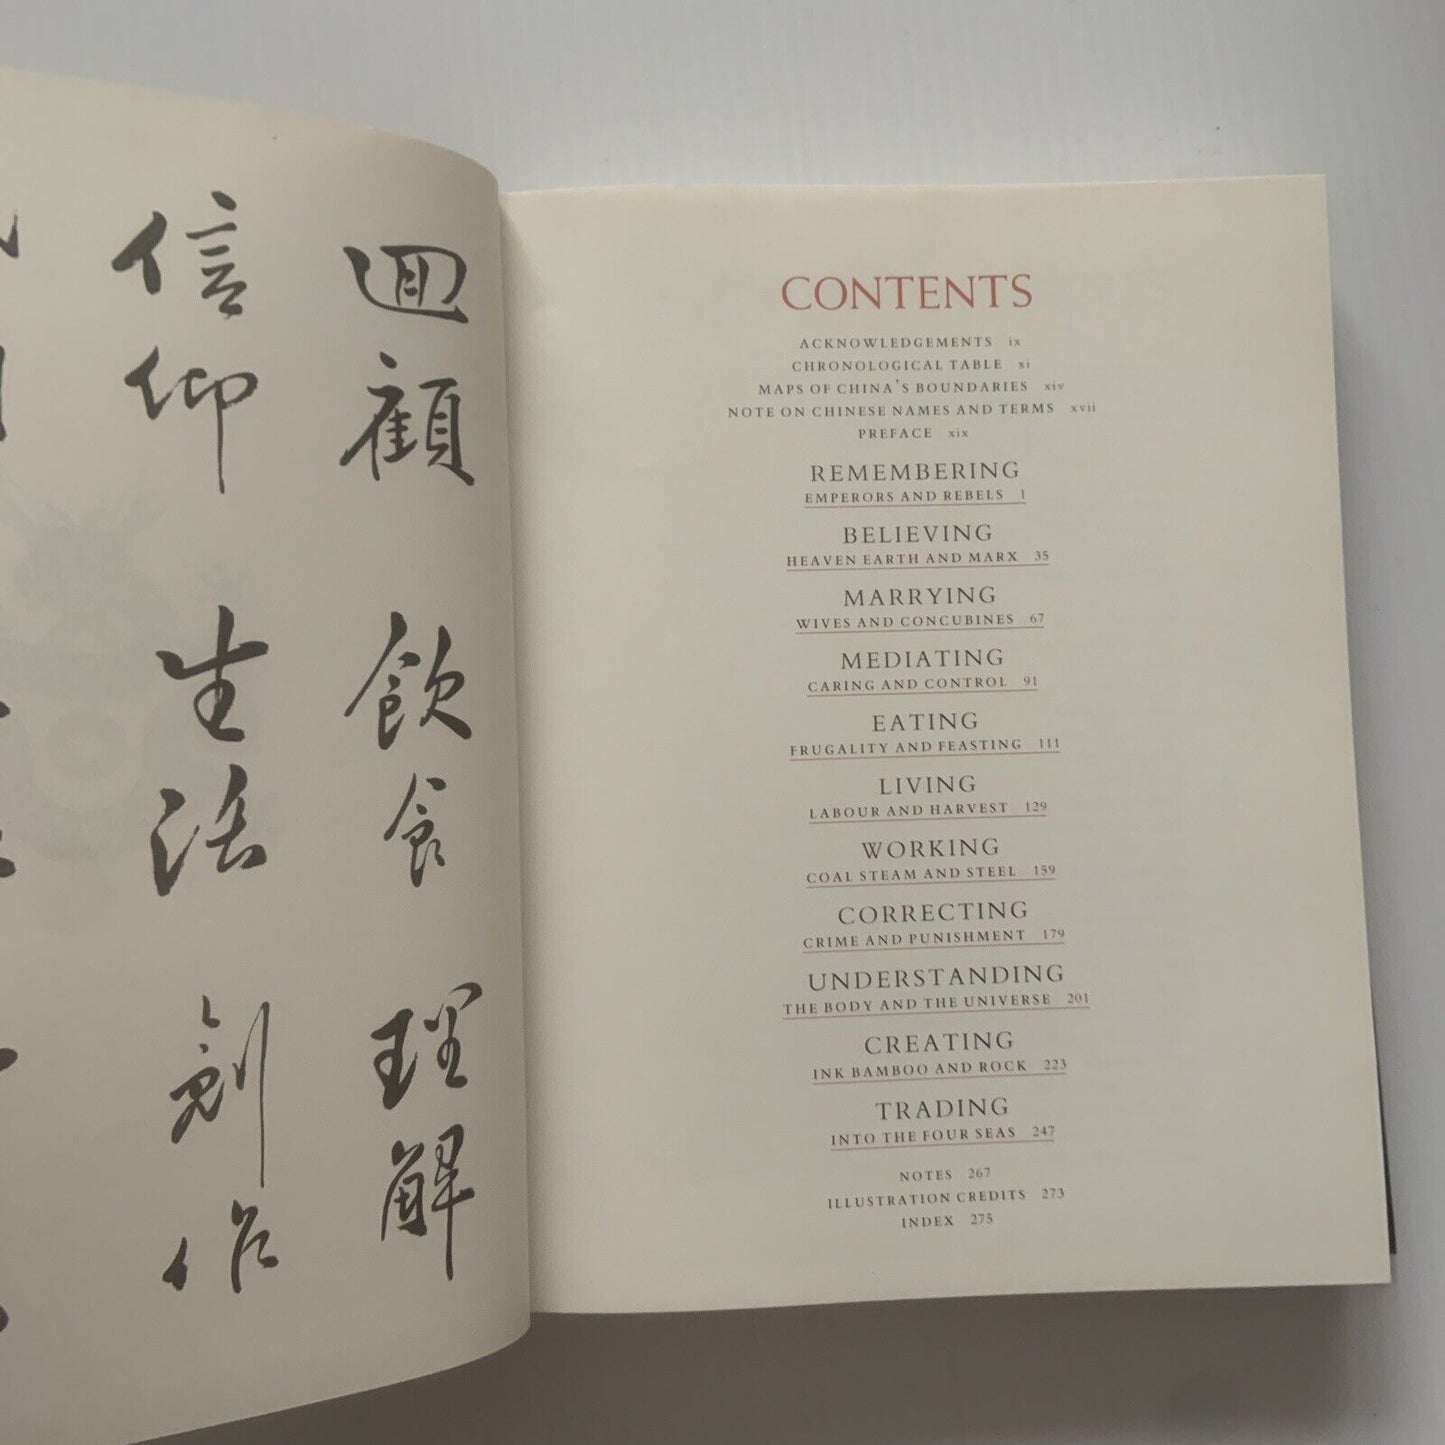 回顧
飲食
理解
信仰
生活
創作
CONTENTS
ACKNOWLEDGEMENTS ix
CHRONOLOGICAL TABLE xi
MAPS OF CHINA'S BOUNDARIES xiv
NOTE ON CHINESE NAMES AND TERMS xvii
PREFACE xix
REMEMBERING
EMPERORS AND REBELS 1
BELIEVING
HEAVEN EARTH AND MARX 35
MARRYING
WIVES AND CONCUBINES 67
MEDIATING
CARING AND CONTROL 91
EATING
FRUGALITY AND FEASTING 111
LIVING
LABOUR AND HARVEST 129
WORKING
COAL STEAM AND STEEL 159
CORRECTING
CRIME AND PUNISHMENT 179
UNDERSTANDING
THE BODY AND THE UNIVERSE 201
CREATING
INK BAMBOO AND ROCK 223
TRADING
INTO THE FOUR SEAS 247
NOTES 267
ILLUSTRATION CREDITS 273
INDEX 275